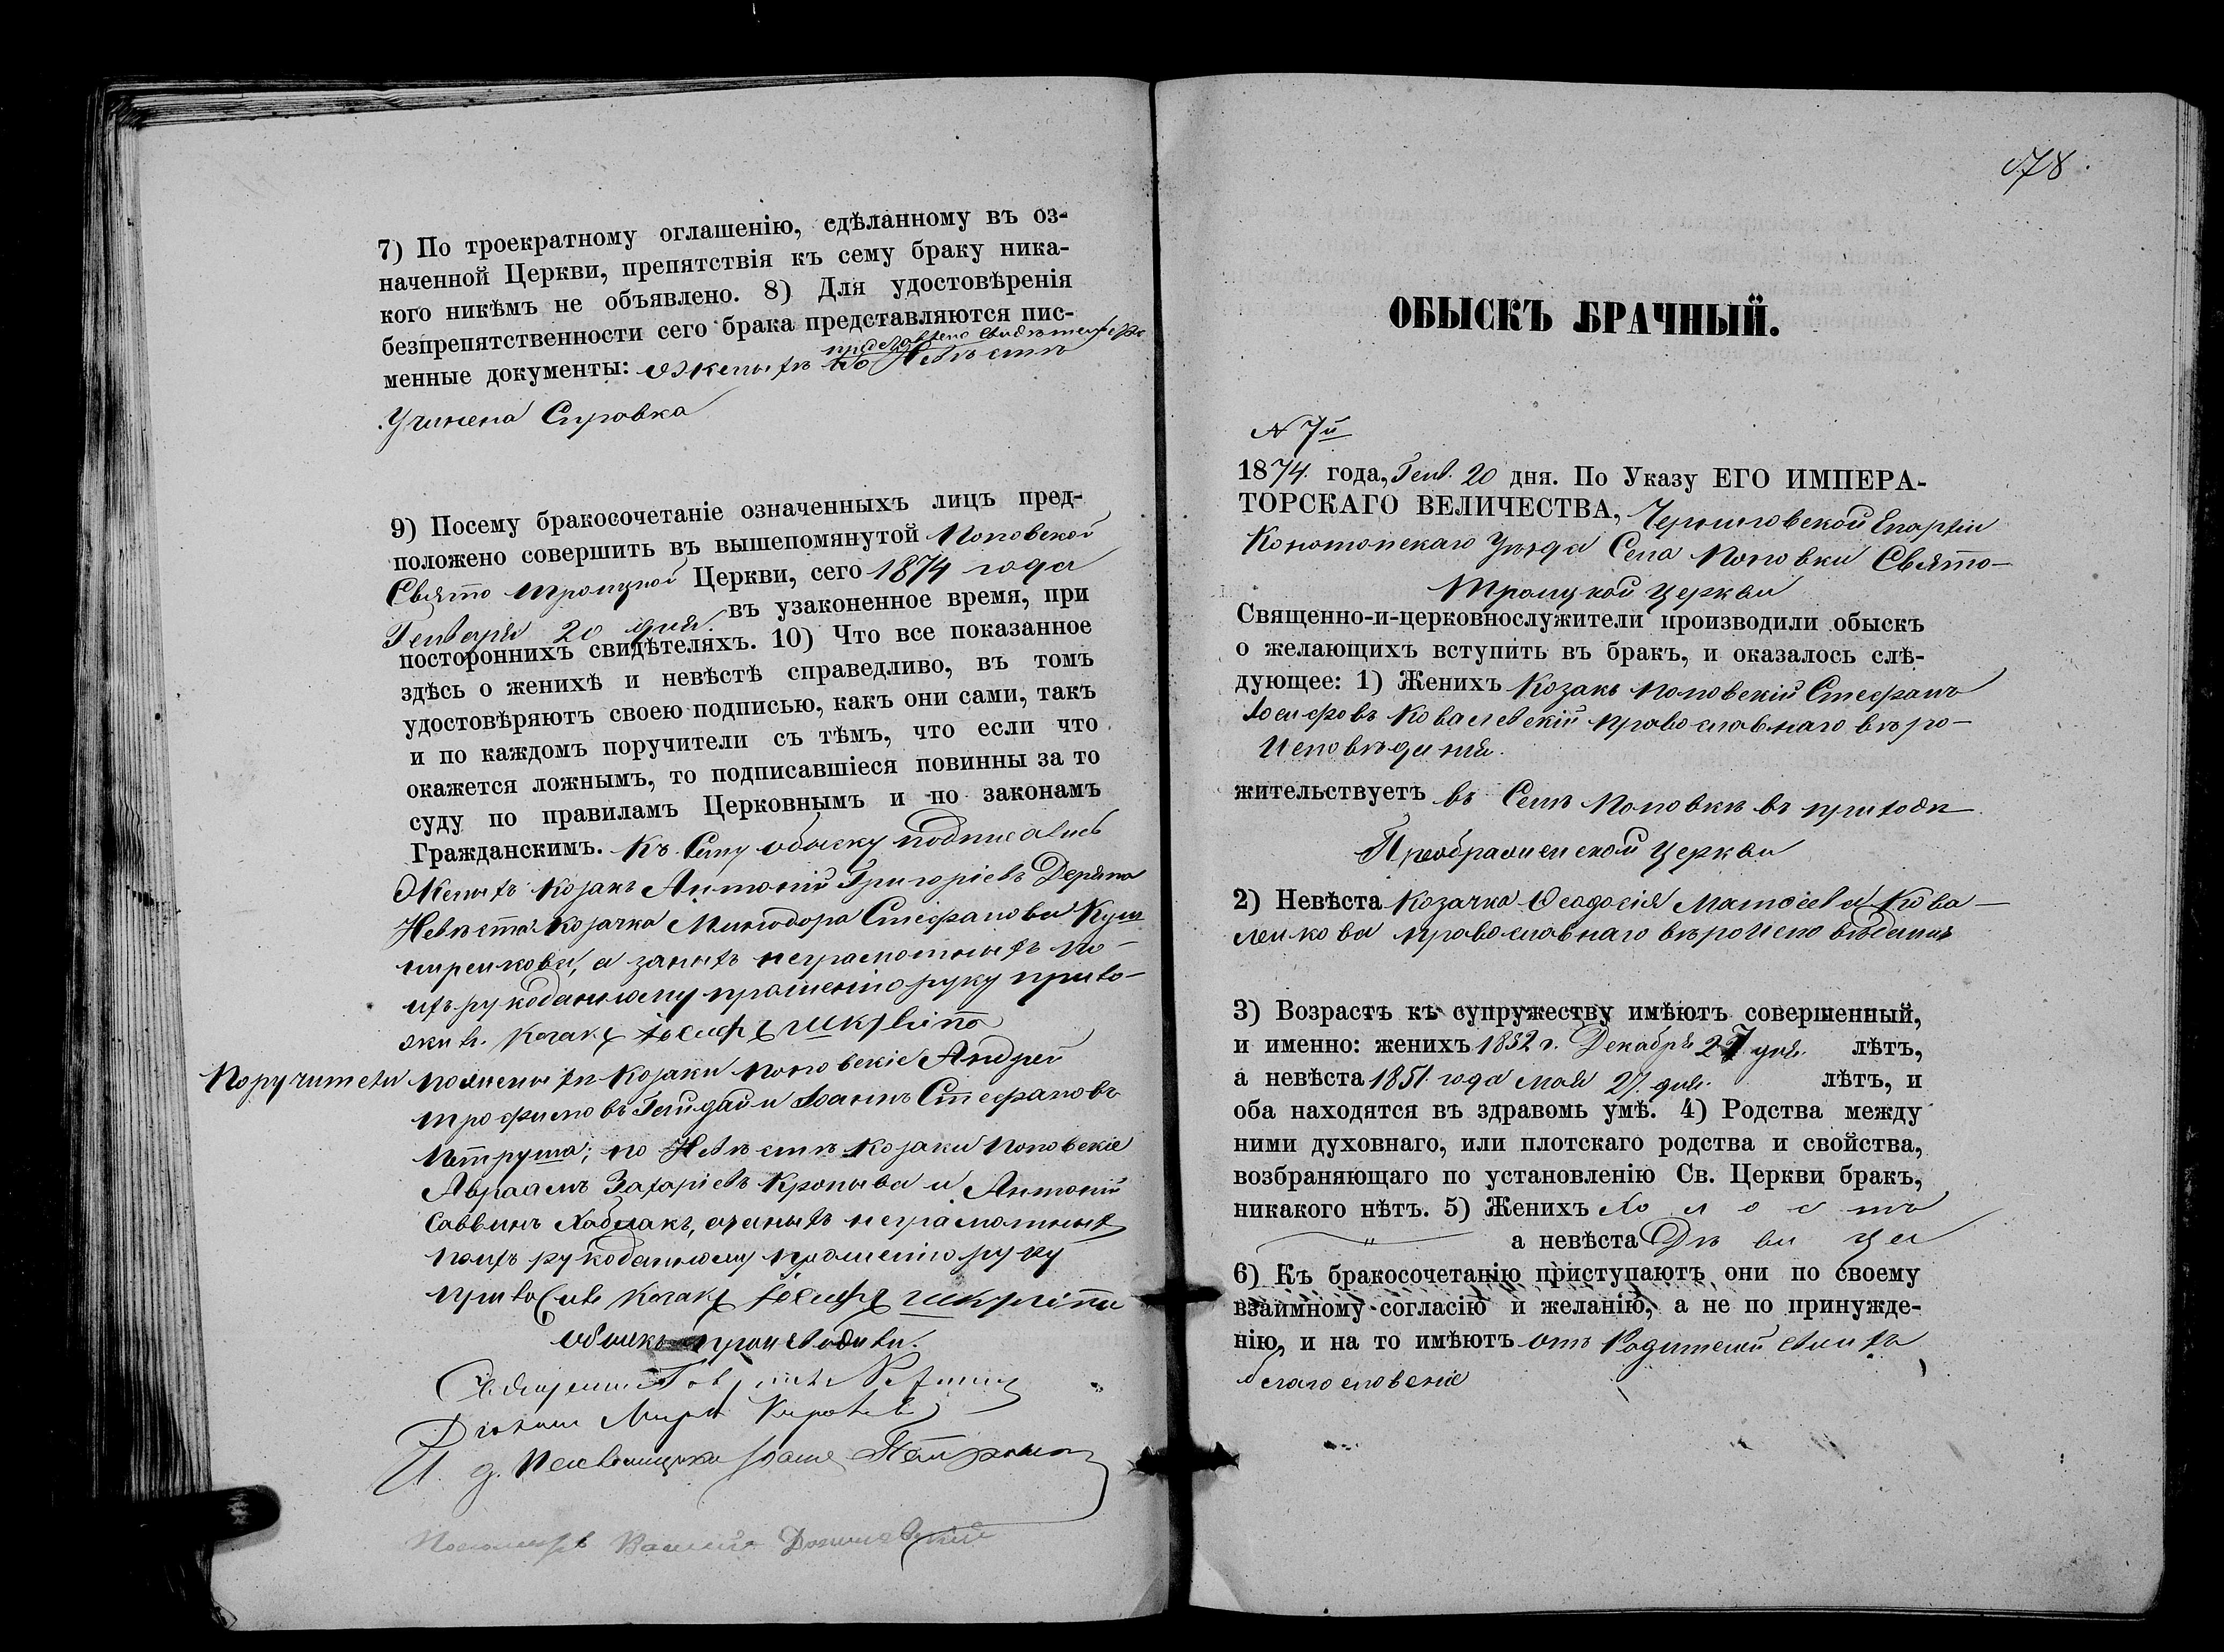 7) По троекратному оглашенію, сдѣланному въ оз-
наченной Церкви, препятствія къ сему браку ника-
кого никѣмъ не объявлено. 8) Для удостовѣренія
безпрепятственности сего брака представляются пис-
представлено
менные документы: о Женихѣ по Невѣстѣ
Учинена Справка
9) Посему бракосочетаніе означенныхъ лицъ пред-
положено совершить въ вышепомянутой Поповской
Свято Троицкой Церкви, сего 1874 года
Генваря 20 дня въ узаконенное время, при
постороннихъ свидѣтеляхъ. 10) Что все показанное
здѣсь о женихѣ и невѣстѣ справедливо, въ томъ
удостовѣряютъ своею подписью, какъ они сами, такъ
и по каждомъ поручители съ тѣмъ, что если что
окажется ложнымъ, то подписавшіеся повинны за то
суду по правиламъ Церковнымъ и по законамъ
Гражданскимъ. Къ Сему обыску подписались
Женихъ Козакъ Антоній Григоріевъ
Невѣста Козачка Минодора Стефанова
а заныхъ неграмотныхъ по
ихъ рукоданному прошенію руку прило-
жилъ Козакъ Іосифъ Шкрыпа
Поручители по женихѣ Козаки Поповскіе Андрей
Трофимовъ и Іоаннъ Стефановъ
Петруша; по Невѣстѣ Козаки Поповскіе
Авраамъ Захаріевъ Кропыва и Антоній
Саввинъ неграмотныхъ
поихъ рукоданному прошенію руку
приложилъ Козакъ Іосифъ
обыскъ производили.
И. д. Псаломщика
Пономарь
78.
ОБЫСКЪ БРАЧНЫЙ.
N 7й
1874. года, Генв. 20 дня. По Указу ЕГО ИМПЕРА-
ТОРСКАГО ВЕЛИЧЕСТВА, Черниговской Епархіи
Конотопскаго Уѣзда Села Поповки Свято-
Троицкой Церкви
Священно-и-церковнослужители производили обыскъ
о желающихъ вступить въ бракъ, и оказалось слѣ-
дующее: 1) Женихъ Козакъ Поповскій Стефанъ
Іосифовъ Ковалевскій православнаго вѣро-
исповѣданія.
жительствуетъ въ Селѣ Поповкѣ въ приходѣ
Преображенской Церкви
2) Невѣста Козачка Ѳеодосія Матѳеева Кова-
ленкова православнаго вѣроисповѣданія
3) Возрастъ къ супружеству имѣютъ совершенный,
и именно: женихъ 1852 г. Декабря 27 дня. лѣтъ,
а невѣста 1851. года мая 27. дня. лѣтъ, и
оба находятся въ здравомъ умѣ. 4) Родства между
ними духовнаго, или плотскаго родства и свойства,
возбраняющаго по установленію Св. Церкви бракъ,
никакого нѣтъ. 5) Женихъ Холостъ
а невѣста Дѣвица
6) Къ бракосочетанію приступаютъ они по своему
взаимному согласію и желанію, а не по принужде-
нію, и на то имѣютъ отъ Родителей своихъ
благословеніе